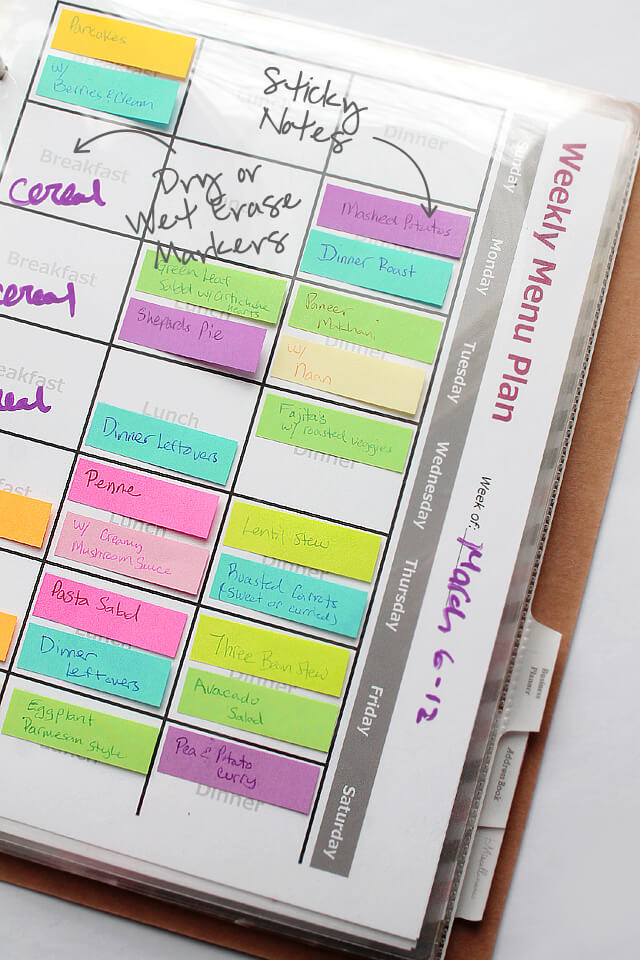 Weekly Menu Plan
Week of: March 6-12
Sunday
Monday
Tuesday
Wednesday
Thursday
Friday
Saturday
Sticky
Notes
Dry or
Wet Erase
Markers
Pancakes
w/
Berries & Cream
Dinner
Breakfast
cereal
Mashed Potatos
Dinner Roast
Breakfast
cereal
Green Leaf
Salad w/ Artichoke
hearts
Lunch
Shepards Pie
Paneer
Makhani
Dinner
w/
Naan
Breakfast
Lunch
Dinner Leftovers
Fajita's
w/ roasted veggies
Dinner
Penne
Lunch
w/ Creamy
Mushroom Sauce
Lentil Stew
Dinner
Roasted Carrots
(sweet or curried)
Pasta Salad
Lunch
Dinner
Leftovers
Three Bean Stew
Dinner
Avacado
Salad
Eggplant
Parmesan style
Lunch
Pea & Potato
curry
Dinner
Business
Planner
Address Book